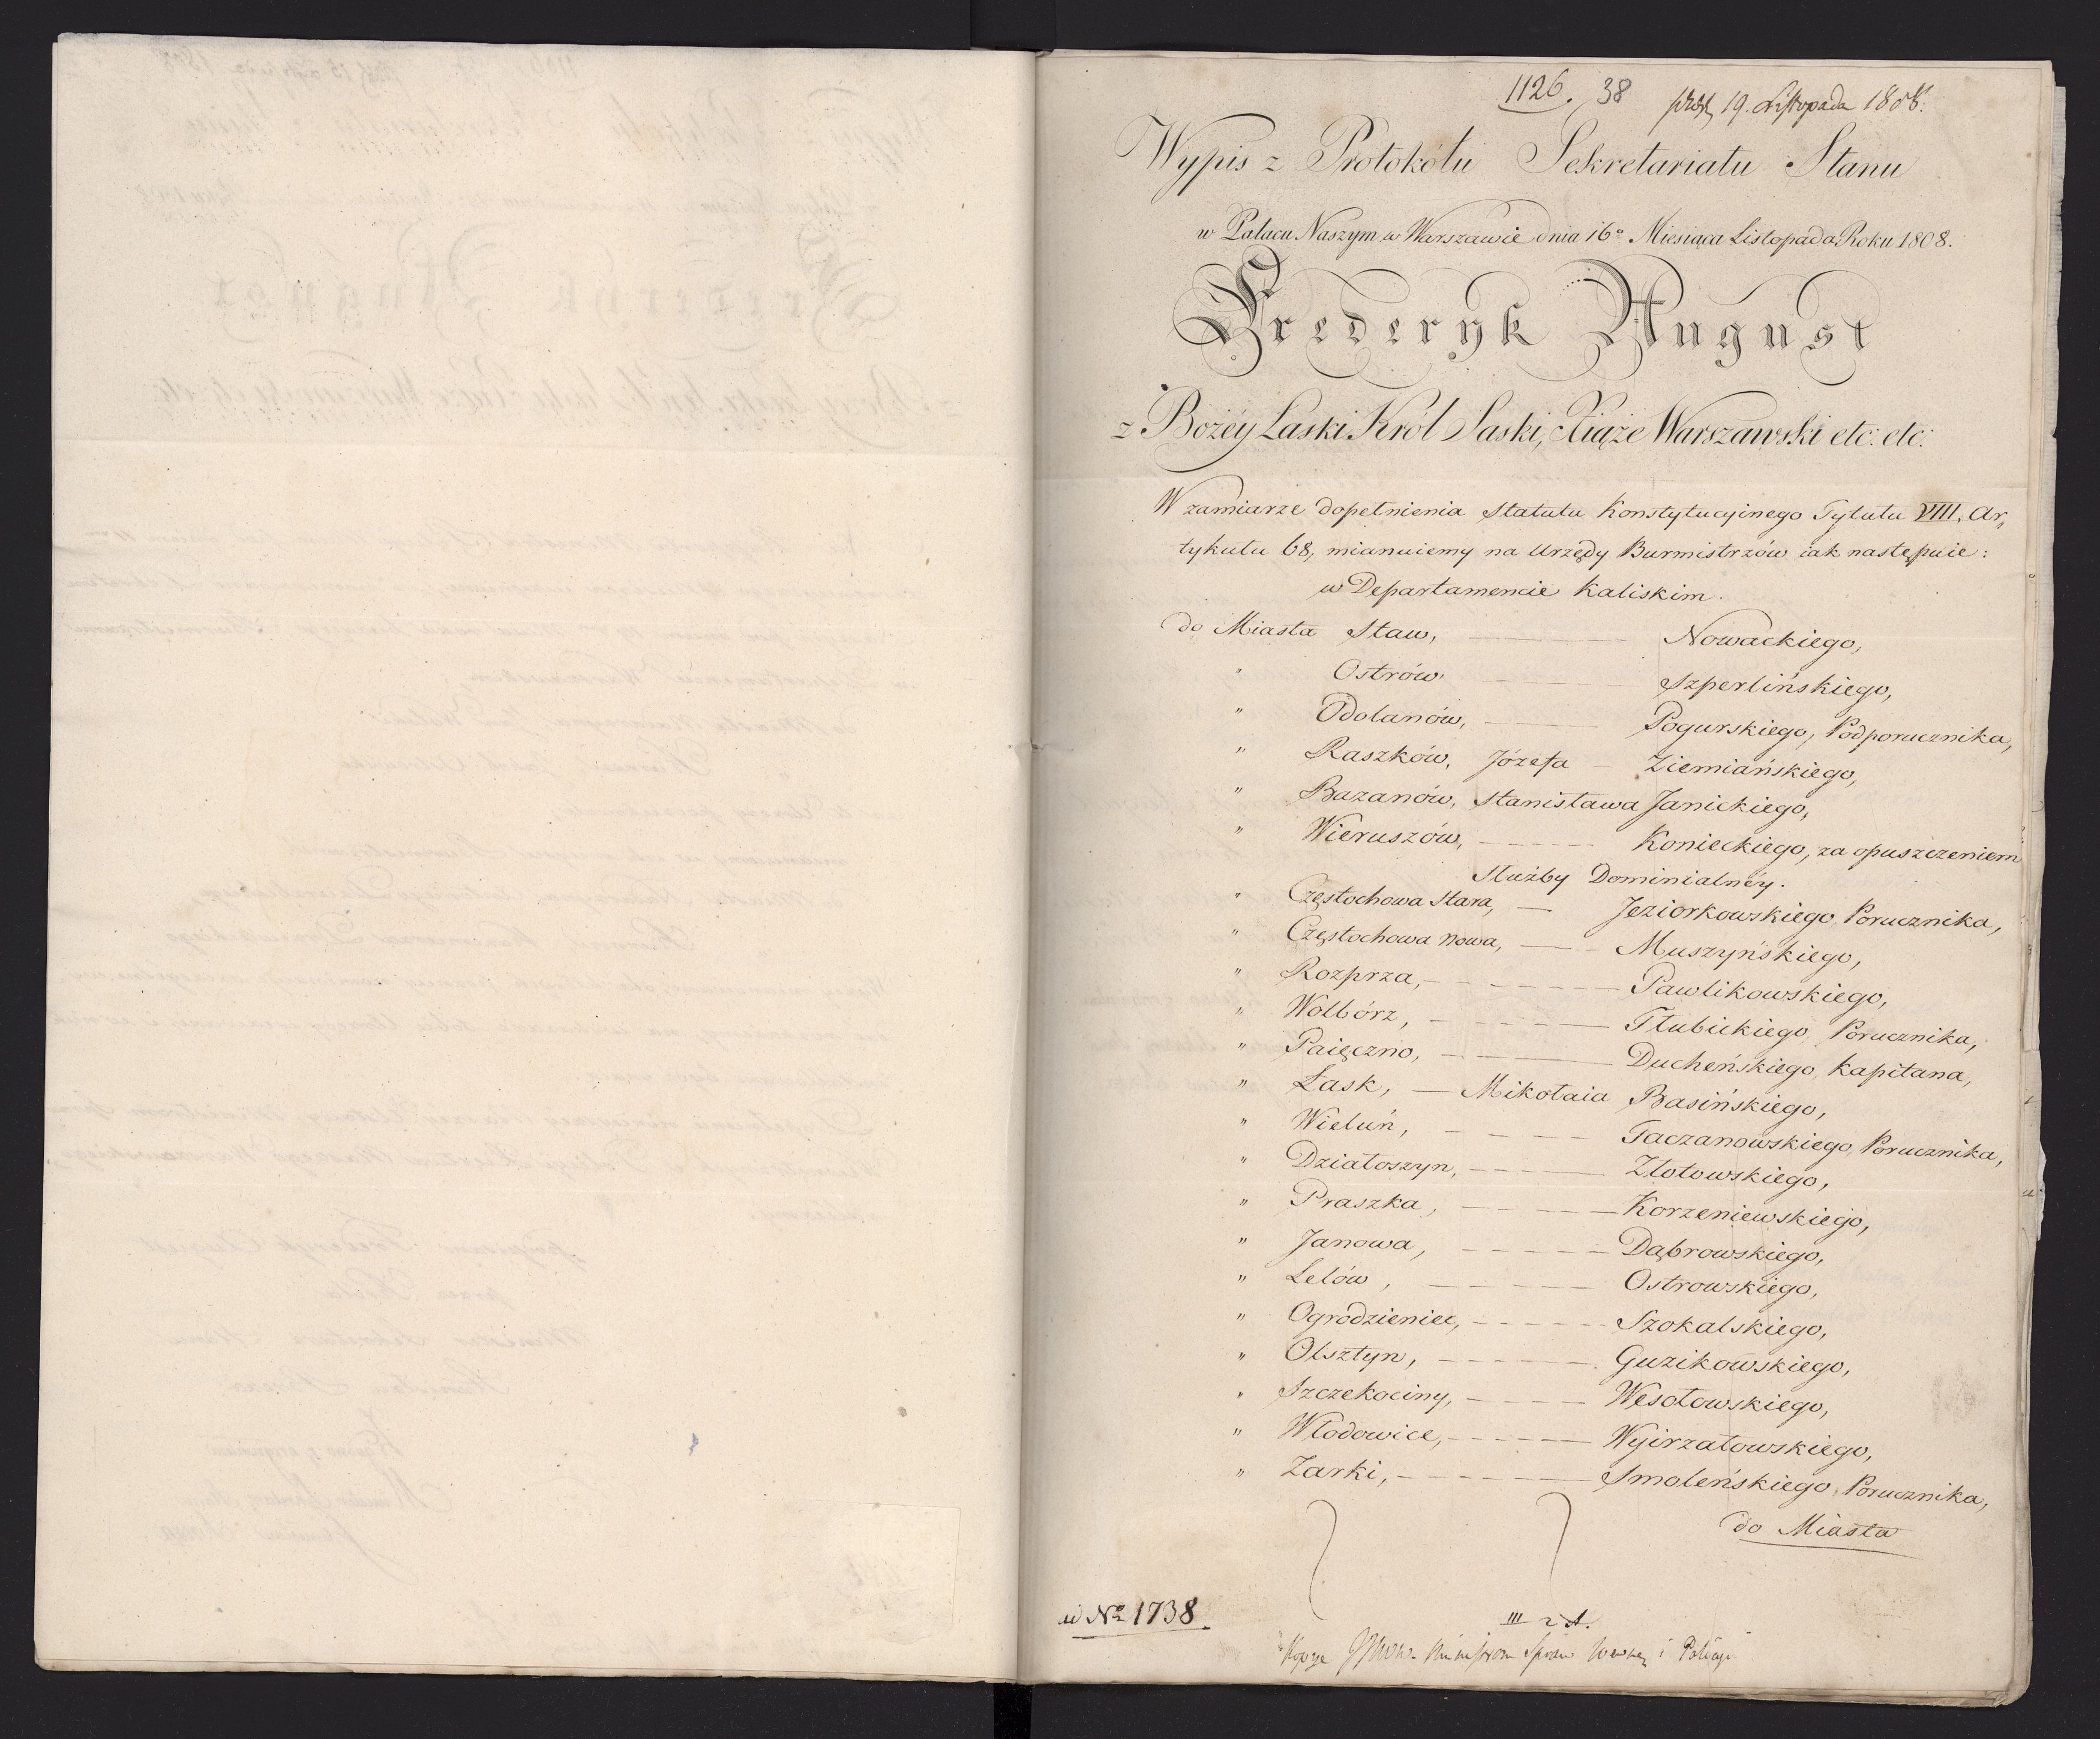 1126. 38 19. Listopada 1808.
Wypis z Protokółu Sekretariatu Stanu
w Pałacu Naszym w Warszawie dnia 16º Miesiąca Listopada Roku 1808.
Frederyk August
z Bożéy Łaski Król Saski, Xiąże Warszawski etc: etc:
W zamiarze dopełnienia Statutu Konstytucyinego Tytułu VIII, Ar„
tykułu 68, mianuiemy na Urzędy Burmistrzów iak następuie:
w Departamencie Kaliskim.
do Miasta Staw, — Nowackiego,
" Ostrów — Szperlińskiego,
" Odolanów, — Pogurskiego, Podporucznika,
" Raszków, Józefa — Ziemiańskiego,
" Bazanów, Stanisława Janickiego,
" Wieruszów, — Konieckiego, za opuszczeniem
Służby Dominialnéy.
" Częstochowa Stara, — Jeziorkowskiego Porucznika,
" Częstochowa Nowa, — Muszyńskiego,
" Rozprza, — Pawlikowskiego,
" Wolbórz, — Tłubickiego, Porucznika,
" Paięczno, — Ducheńskiego, Kapitana,
" Łask, — Mikołaia Basińskiego,
" Wieluń, — Taczanowskiego, Porucznika,
" Działoszyn, — Złotowskiego,
" Praszka, — Korzeniewskiego,
" Janowa, — Dąbrowskiego,
" Lelów, — Ostrowskiego,
" Ogrodzieniec, — Szokalskiego,
" Olsztyn, — Guzikowskiego,
" Szczekociny, — Wesołowskiego,
" Włodowice, — Wyirzałowskiego,
" Zarki, — Smoleńskiego, Porucznika,
do Miasta
ad Nº 1738.
III
Kopye Ministrom Spraw Wewnę i Policyi